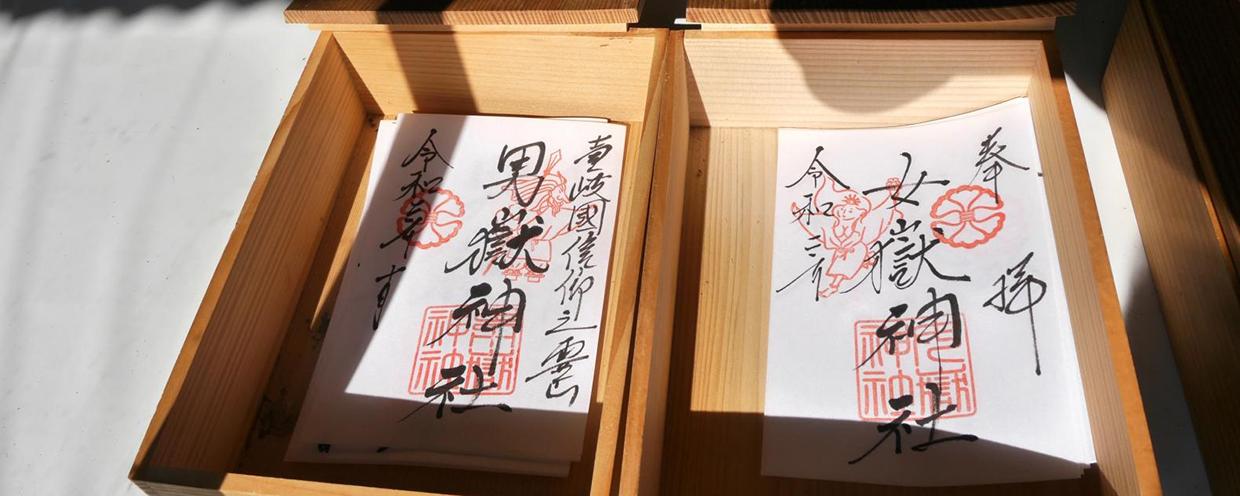 壹岐國信仰之霊山
男嶽神社
令和
奉拝
女嶽神社
令和二年